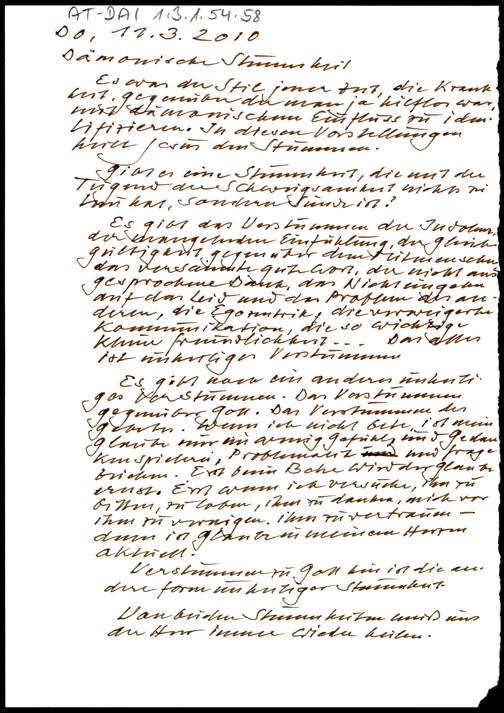 AT-DAI 1.3.1.54.58
Do, 11.3.2010
Dämonische Stummheit
Es war der Stil jener Zeit, die Krank-
heit, gegenüber der man ja hilflos war,
mit dämonischem Einfluss zu iden-
tifizieren. In diesen Vorstellungen
heilt Jesus den Stummen.
Gibt es eine Stummheit, die mit der
Tugend der Schweigsamkeit nichts zu
tun hat, sondern Sünde ist?
Es gibt das Verstummen der Indolenz,
der mangelnden Einfühlung, der Gleich-
gültigkeit gegenüber dem Mitmenschen,
das versäumte gute Wort, der nicht aus-
gesprochene Dank, das Nichteingehen
auf das Leid und das Problem des an-
deren, die Egozentrik, die verweigerte
Kommunikation, die so wichtige
kleine Freundlichkeit... Das alles
ist unheiliges Verstummen
Es gibt noch ein anderes unheili-
ges Verstummen. Das Verstummen
gegenüber Gott. Das Verstummen des
Gebetes. Wenn ich nicht bete, ist mein
Glaube nur ein wenig Gefühl und Gedan-
kenspielerei, Problematik und Frage-
zeichen. Erst beim Beten wird der Glaube
ernst. Erst wenn ich versuche, ihn zu
bitten, zu loben, ihm zu danken, mich vor
ihm zu verneigen, ihm zu vertrauen –
dann ist Glaube an meinen Herrn
aktuell.
Verstummen zu Gott hin ist die an-
dere Form unheiliger Stummheit.
Von beiden Stummheiten muß uns
der Herr immer wieder heilen.